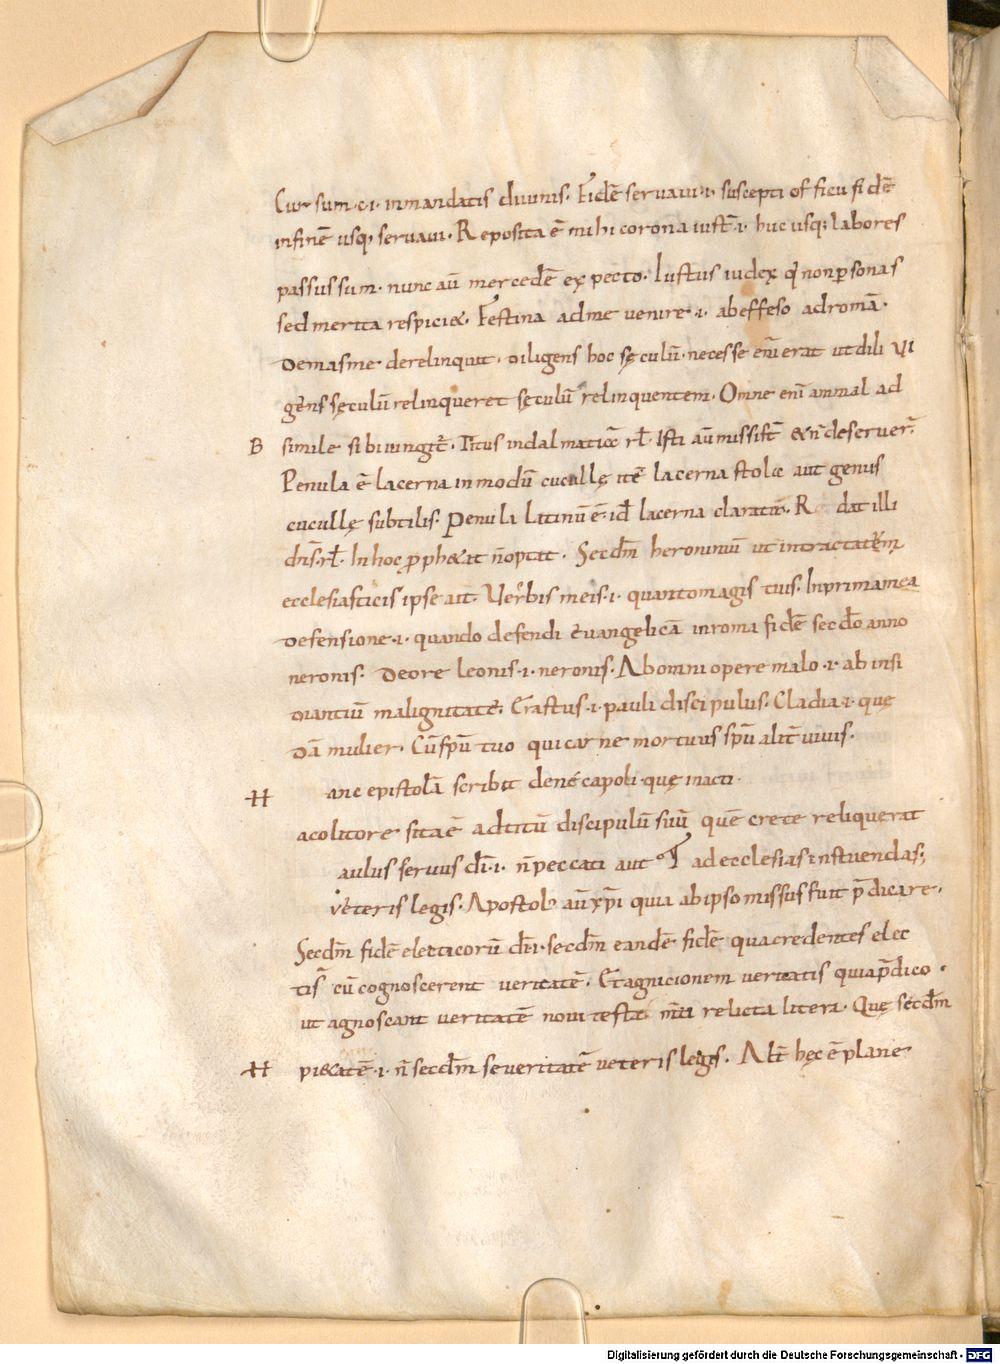 Cursum .c.i. inmandatis divinis. Fidē servavi .i. suscepti officii fidē
infinē usq; servavi. Reposita ē mihi corona iustȩ̄ .i. huc usq; labores
passus sum. nunc aū mercedē expecto. Iustus iudex q̇ non ꝑsonas
sed merita respici&. Festina adme venire .i. abeffeso adromā.
Demas me dereliquit. diligens hoc sęculū. necesse enī erat ut dili VI
gens sęculū relinqueret sęculū relinquentem. Omne enī animal ad
B simile sibi iungit̄. Titus indalmatiā rł. Isti aū missi st̄ & n̄ deseruer̄.
Penula ē lacerna inmodū cucullę. itē lacerna stola aut genus
cucullę subtilis. Penula latinū ē. id̄ lacerna clarator. R dat illi
dn̄s. rł. In hoc ꝓph&at n̄ optat. Secdm̄ heronimū ut intractatēm
ecclesiasticis ipse ait. Verbis meis .i. quantomagis tuis. Inprima mea
defensione .i. quando defendi evangelicā inroma fidē secdo anno
neronis. De ore leonis .i. neronis. Ab omni opere malo .i. ab insi
diantiū malignitate. Erastus .i. pauli discipulus. Cladia .i. quę
dā mulier. Cū sp̄u tuo qui carne mortuus sp̄u alit̄ vivis.
H anc epistolā scribit de nécapoli. quę inacti
acolitore sita ē adtitū discipulū suū quē crete reliquerat
aulus servus dī .i. n̄ peccati aut T ad ecclesias instruendas;
veteris legis. Apostolus aū xp̄i quia ab ipso missus fuit p̄dicare.
Secdm̄ fidē electorū dī .i. secdm̄ eandē fidē qua credentes elec
ti st̄ cū cognoscerent veritatē. Et agnicionem veritatis quia p̄dico.
ut agnoscant veritatē novi testa mti relicta litera. Quę secdm̄
H pi&atē .i. n̄ secdm̄ severitatē veteris legis. Alit̄ hęc ē plane
Digitalisierung gefördert durch die Deutsche Forschungsgemeinschaft - DFG